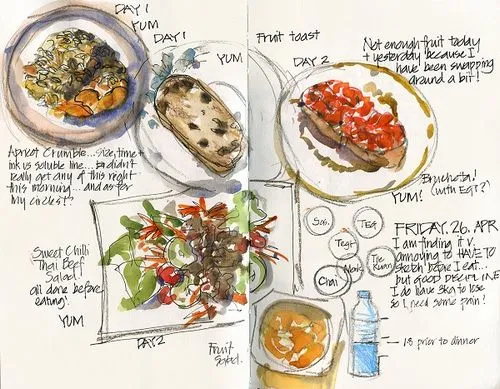 DAY 1
YUM
DAY 1
YUM
Fruit toast
DAY 2
Not enough fruit today
+ yesterday because I
have been swapping
around a bit!
Apricot Crumble... size, time +
ink vs soluble line... so didn't
really get any of this right
this morning... and as for
my circles!?
Bruchetta!
(with EGT?)
YUM!
Sweet Chilli
Thai Beef
Salad.
all done before
eating!
YUM
DAY 2
Fruit
Salad.
TEG
Tegt
Chai
Tie
Kuan
FRIDAY. 26. APR
I am finding it v.
annoying to HAVE TO
sketch before I eat...
but good DISCIPLINE
I do have 3kg to lose
so I need some pain!
1.8 prior to dinner